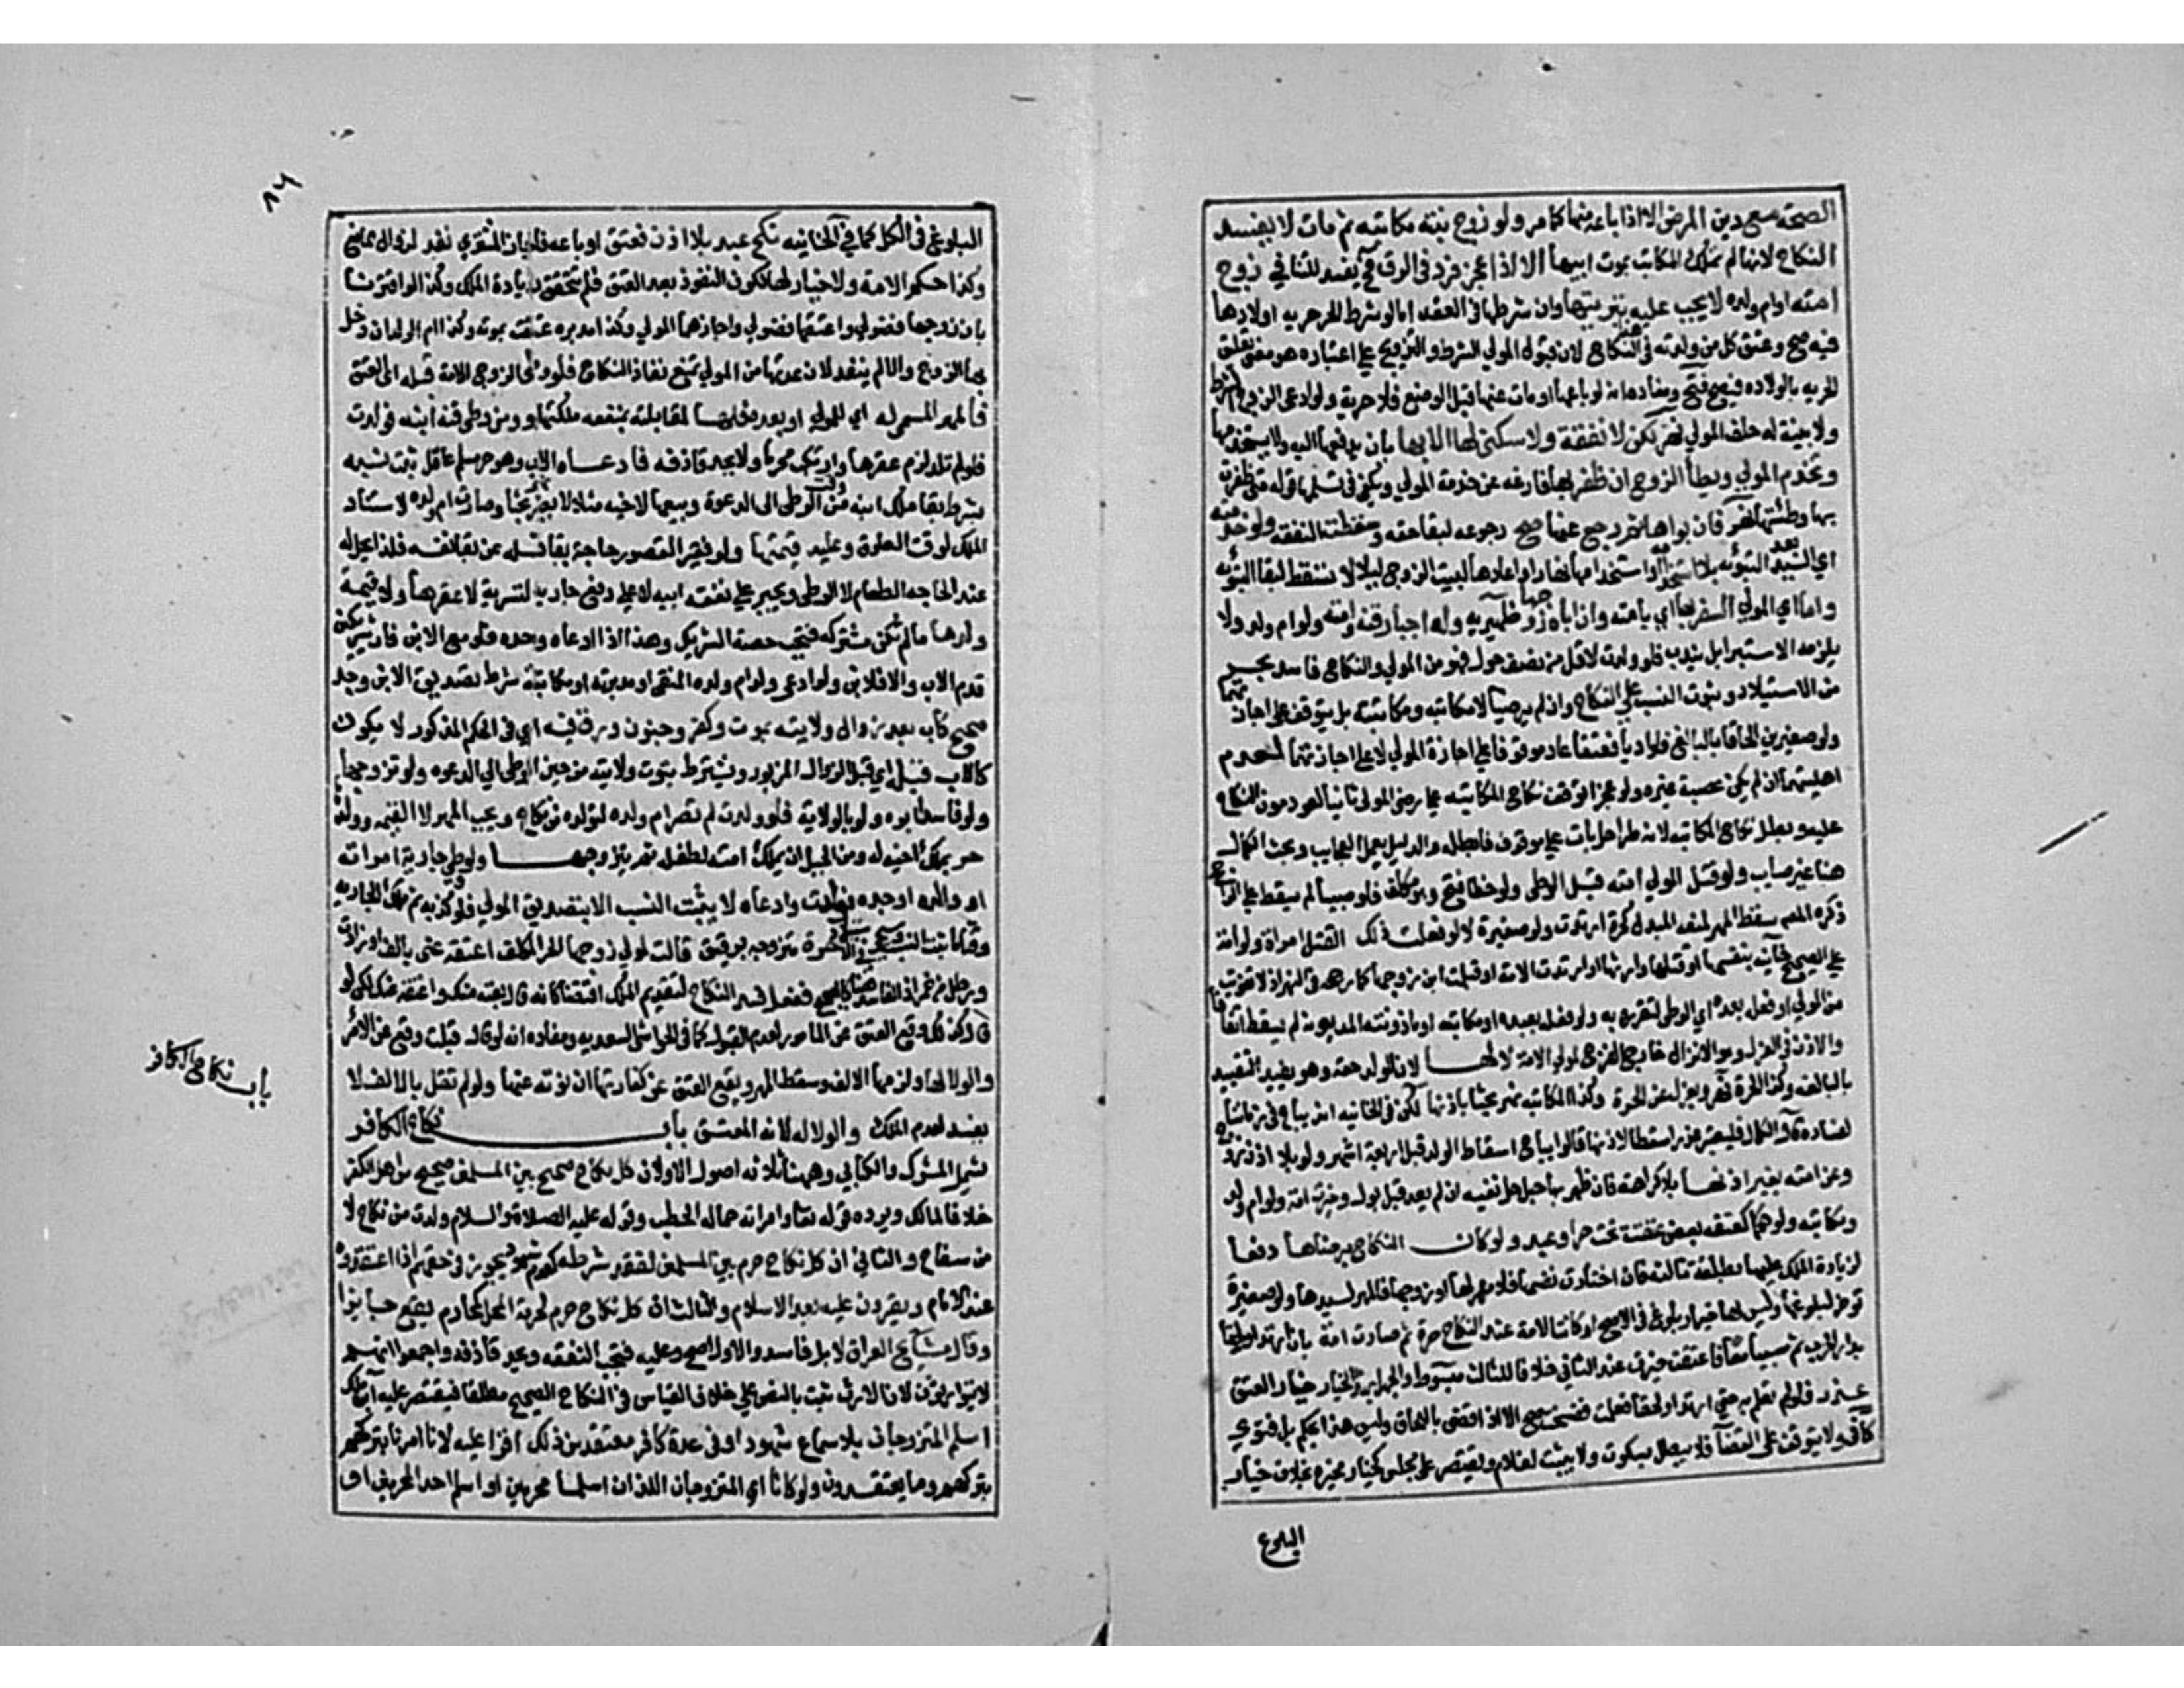 الصحة مع دين المرض الا اذا باعه منها كما مر ولو زوج بنته مكاتبه ثم مات لا يفسد
النكاح لانها لم تملك المكاتب بموت ابيها الا اذا عجز فرد في الرق فح يفسد للتنافي زوج
امته او ام ولده لا يجب عليه تبويتها وان شرطها في العقد اما لو شرط الحر حرية اولادها
فيه صح وعتق كل من ولدته في هذا النكاح لان قبول المولي الشرط والتزويج علي اعتباره هو معني تعليق
الحرية بالولاده فيصح فتح ومفاده انه لو باعها او مات عنها قبل الوضع فلا حرية ولو ادعي الزوج الشرط
ولا بينة له حلف المولي نهر لكن لا نفقة ولا سكني لها الا بها بان يدفعها اليه ولا يستخدمها
وتخدم المولي ويطأ الزوج ان ظفر بها فارغه عن خدمة المولي ويكفي في تسليمها قوله متي ظفرت
بها وطئتها نهر فان بواها ثم رجع عنها صح رجوعه لبقا حقه وسقطت النفقه ولو خدمته
اي السيد بعد التبوئه بلا استخدامه او استخدامها نهارا واعادها لبيت الزوج ليلا لا تسقط لبقا التبوئه
وله اي المولي السفر بها اي بامته وان اباه الزوج ظهيريه وله اجبار قنه وامته ولو ام ولد ولا
يلزمه الاستبرا بل يندب فلو ولدت لاقل من نصف حول فهو من المولي والنكاح فاسد بحر
من الاستيلاد وثبوت النسب علي النكاح وان لم يرضيا لا مكاتبه ومكاتبته بل يتوقف علي اجازتهما
ولو صغيرين الحاقا بالبالغ فلو اديا فعتقا عاد موقوفا علي اجازة المولي لا علي اجازتهما لعدم
اهليتهما ان لم يكن عصبة غيره ولو عجزا توقف نكاح المكاتبه علي رضي المولي ثانيا لعود مون النكاح
عليه وبطل نكاح المكاتبه لانه طرا حل بات علي موقوف فابطله والدليل يعمل العجايب وبحث الكمال
هنا غير صايب ولو قتل المولي امته قبل الوطي ولو خطا فتح وهو مكلف فلو صبيا لم يسقط علي الراجح
ذكره المصـ سقط المهر لمنعه المبدل كحرة ارتدت ولو صغيرة لا لو فعلت ذلك القتل امراة ولو امة
علي الصحيح خانيه بنفسها او قتلها وارثها او ارتدت الامة او قبلت ابن زوجها كما رجحه في النهر اذ لا تفويت
من المولي او فعل بعده اي الوطي لتقرره به ولو فعله بعبده او مكاتبه او ماذونته المديونه لم يسقط اتفاقا
والاذن في العزل وهو الانزال خارج الفرج لمولي الامة لا لها لان الولد حقه وهو يفيد التقييد
بالبالغه وكذا الحرة نهر ويعزل عن الحرة وكذا المكاتبه نهر بحثا باذنها لكن في الخانيه انه يباح في زماننا
لفساده قال الكمال فليعتبر عذرا مسقطا لاذنها قالوا يباح اسقاط الولد قبل اربعة اشهر ولو بلا اذن الزوج
وعن امته بغير اذنها بلا كراهه فان ظهر بها حبل حل نفيه ان لم يعد قبل بول وخيرت امة ولو ام ولد
ومكاتبه ولو حكما كمعتقة بعض عتقت تحت حر او عبد ولو كان النكاح برضاها دفعا
لزيادة الملك عليها بطلقة ثالثه فان اختارت نفسها فلا مهر لها او زوجها فالمهر لسيدها ولو صغيرة
توخر لبلوغها وليس لها خيار بلوغ في الاصح او كانت الامة عند النكاح حرة ثم صارت امة بان ارتدا ولحقا
بدار الحرب ثم سبيا معا فاعتقت خيرت عند الثاني خلافا للثالث مبسوط والجهل بهذا الخيار خيار العتق
عذر فلو لم تعلم به حتي ارتدا ولحقا فعلمت ففسخت صح الا اذا قضي باللحاق وليس هذا بحكم بل فتوي
كافي ولا يتوقف علي القضآ فلا يبطل بسكوت ولا يثبت لغلام ويقتصر علي مجلس كخيار مخيره بخلاف خيار
البلوغ
٨٦
البلوغ في الكل كما في الخانيه نكح عبد بلا اذن فعتق او باعه فاجاز المشتري نفذ لزوال المانع
وكذا حكم الامة ولا خيار لها لكون النفوذ بعد العتق فلم تتحقق زيادة الملك وكذا لو اقترنا
بان زوجها فضولي واعتقها فضولي واجازهما المولي وكذا مدبره عتقت بموته وكذا ام الولد ان دخل
بها الزوج والا لم ينفذ لان عدتها من المولي تمنع نفاذ النكاح فلو وطي الزوج الامة قبله اي العتق
فالمهر المسمي له اي للمولي او بعده فلها لمقابلته بمنفعه ملكتها ومن وطي قنة ابنه فولدت
فلو لم تلد لزم عقرها وارتكب محرما ولا يحد قاذفه فادعاه الاب وهو حر مسلم عاقل ثبت نسبه
بشرط بقا ملك ابنه من وقت الوطي الي الدعوة وبيعها لاخيه مثلا لا يضر نهر بحثا وصارت ام ولده لاستناد
الملك لوقت العلوق وعليه قيمتها ولو فقيرا لقصور حاجة بقا نسله عن بقا نفسه فلذا يحل له
عند الحاجه الطعام لا الوطي ويجبر علي نفقه ابيه لا علي دفع جاريه لتسرية لا عقرها ولا قيمة
ولدها ما لم تكن مشتركه فتجب حصة الشريك وهذا اذا ادعاه وحده فلو مع الابن فان شريكين
قدم الاب والا فالابن ولو ادعي ولد ام ولده المنفي او مدبرته او مكاتبته شرط تصديق الابن وجد
صحيح كاب بعد زوال ولايته بموت وكفر وجنون ورق فيه اي في الحكم المذكور لا يكون
كالاب قبله اي قبل الزوال المزبور ويشترط ثبوت ولايته من حين الوطي الي الدعوه ولو تزوجها
ولو فاسدا ابوه ولو بالولاية فلو ولدت لم تصر ام ولده لتولده من نكاح ويجب المهر لا القيمه وولدها
حر بملك اخيه له ومن الحيل ان يملك امته لطفله ثم يتزوجها ولو وطي جارية امراته
او والده او جده فولدت وادعاه لا يثبت النسب الا بتصديق المولي فلو كذبه ثم ملك الجاريه
وقتا ما ثبت النسب حرة متزوجه برقيق قالت لمولي زوجها الحر المكلف اعتقه عني بالف او زادت
ورطل من خمر اذ الفاسد هنا كالصحيح ففعل فسد النكاح لتقدم الملك اقتضا كانه قال بعته منك واعتقته عنك لكن لو
قال كذلك وقع العتق عن المامور لعدم القبول كما في الحواشي السعديه ومفاده انه لو قال قبلت وقع عن الامر
والولا لها ولزمها الالف وسقط المهر ويقع العتق عن كفارتها ان نوته عنها ولو لم تقل بالالف لا
يفسد لعدم الملك والولا له لانه المعتق باب نكاح الكافر
باب نكاح الكافر
يشمل المشرك والكتابي وههنا ثلاثه اصول الاول ان كل نكاح صحيح بين المسلمين صحيح بين اهل الكفر
خلافا لمالك ويرده قوله تعا وامراته حمالة الحطب وقوله عليه الصلاة والسلام ولدت من نكاح لا
من سفاح والثاني ان كل نكاح حرم بين المسلمين لفقد شرطه كعدم شهود يجوز في حقهم اذا اعتقدوه
عند الامام ويقرون عليه بعد الاسلام والثالث ان كل نكاح حرم لحرمة المحل كمحارم يقع جايزا
وقال مشايخ العراق لا بل فاسدا والاول اصح وعليه فتجب النفقه ويحد قاذفه واجمعوا انهم
لا يتوارثون لان الارث ثبت بالنص علي خلاف القياس في النكاح الصحيح مطلقا فيقتصر عليه ابن ملك
اسلم المتزوجان بلا سماع شهود او في عدة كافر معتقدين ذلك اقرا عليه لانا امرنا بتركهم
بتركهم وما يعتقدون ولو كانا اي المتزوجان اللذان اسلما محرمين او اسلم احد المحرمين او